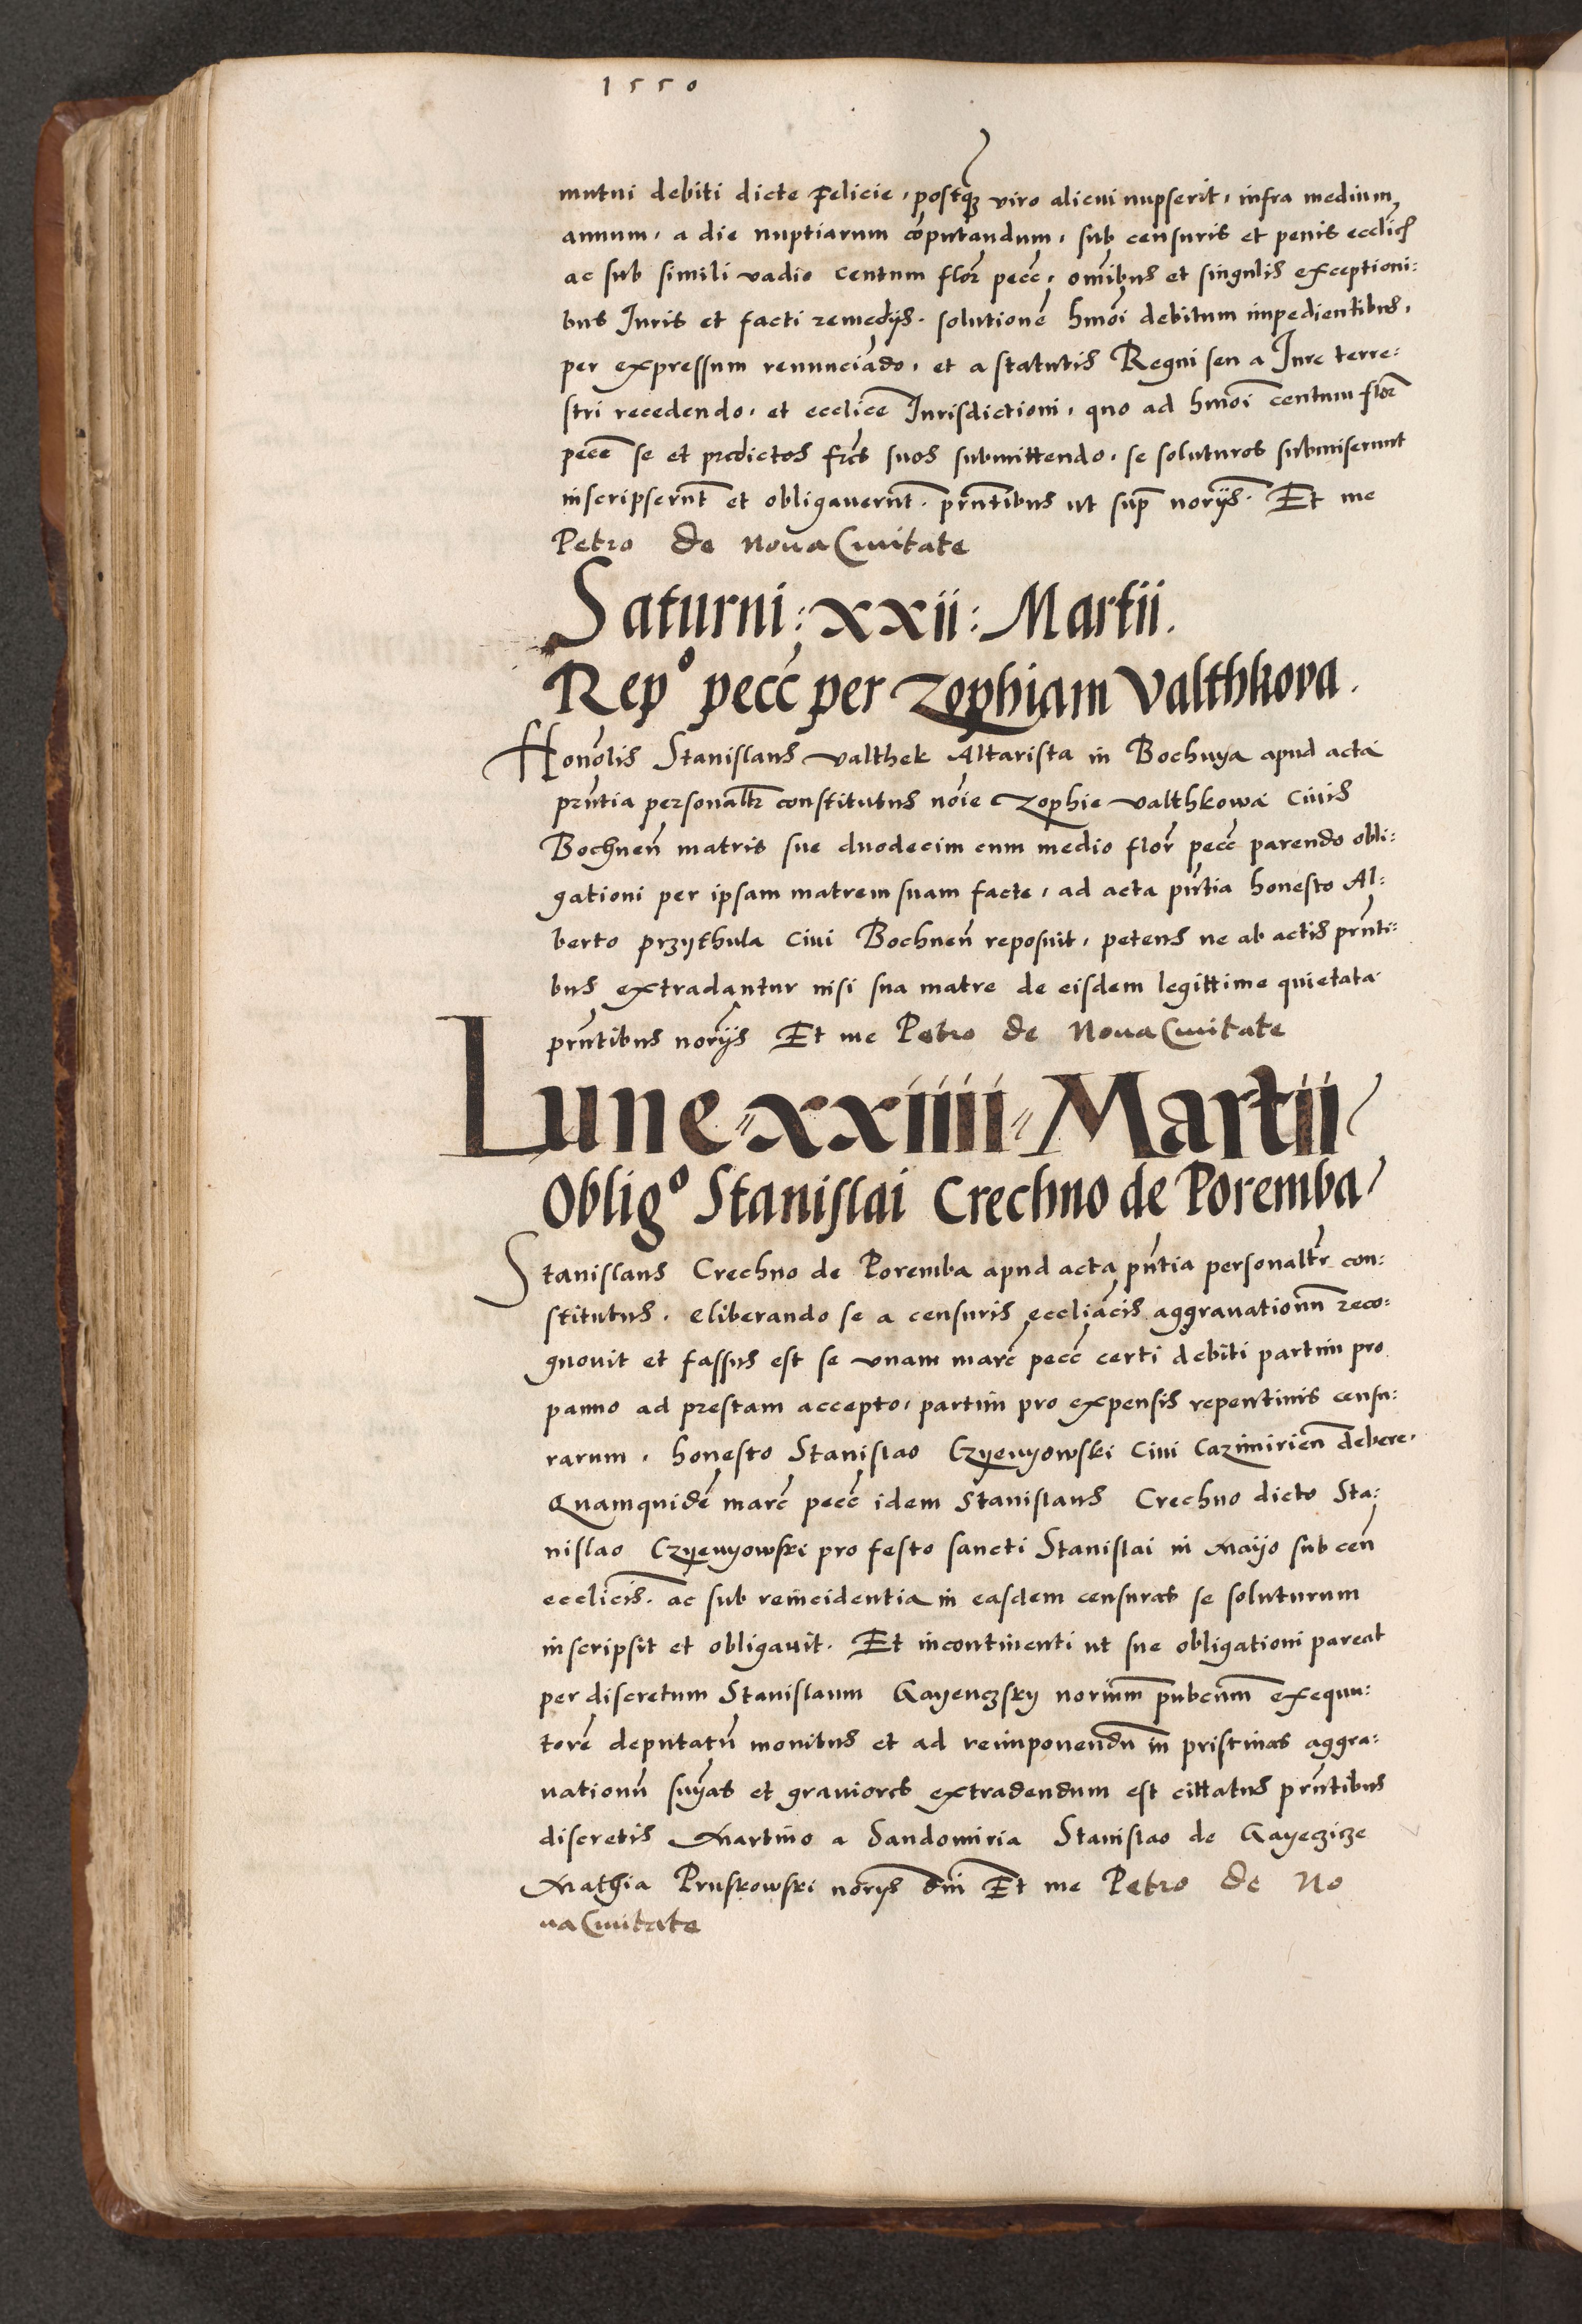 1550
mutui debiti dicte Felicie, postq̃ȝ viro alicui nupserit, infra medium
annum, a die nuptiarum cõputandum, sub censuris et penis eccličis
ac sub simili vadio centum flor̃ pecc̃, om̃ibus et singulis exceptioni:
bus Iuris et facti remedijs. solutionẽ hmõi debitum impedientibus,
per expressum renunciãdo, et a statutis Regni seu a Iure terre:
stri recedendo, et ecclic̃e Iurisdictioni, quo ad hmõi centum flor̃
pecc̃ se et predictos fr̃es suos submittendo, se soluturos submiserunt
inscripserũt et obligauerũt. prñtibus ut sup̃ norijs̃. Et me
Petro de NouaCiuitate
Saturni: xxii: Martii.
Repº pecc̃ per Zophiam Valthkova.
Honõlis Stanislaus Valthek Altarista in Bochnya apud acta
prñtia personaltr̃ constitutus nõie Zophie Valthkowa Ciuis
Bochneñ matris sue duodecim cum medio flor̃ pecc̃ parendo obli:
gationi per ipsam matrem suam facte, ad acta pñtia honesto Al:
berto przythula Ciui Bochneñ reposuit, petens ne ab actis prñti:
bus extradantur nisi sua matre de eisdem legittime quietata
prñtibus norijs̃ Et me Petro de NouaCiuitate
Lune xxiiii Martii
Obligº Stanislai Crechno de Poremba
Stanislaus Crechno de Poremba apud acta pñtia personaltr̃ con:
stitutus. eliberando se a censuris eccliãcis aggrauationũ reco:
gnouit et fassus est se vnam marc̃ pecc̃ certi debiti partim pro
panno ad prestam accepto, partim pro expensis repentinis censu:
rarum, honesto Stanislao Czyenyowski Ciui Cazimirieñ debere.
Quamquidẽ marc̃ pecc̃ idem Stanislaus Crechno dicto Sta:
nislao Czyenyowski pro festo sancti Stanislai in Maijo sub ceñ
ecclicis̃. ac sub reincidentia in easdem censuras se soluturum
inscripsit et obligauit. Et incontinenti ut sue obligationi pareat
per discretum Stanislaum Gayenczsky noriũm pubcũm exequu:
torẽ deputatũ monitus et ad reimponendũ in pristinas aggra:
uationũ suj̃as et grauiores extradendum est cittatus prñtibus
discretis Martino a Sandomiria Stanislao de Gayeczicze
Mathia Pruskowski norijs̃ dñi Et me Petro de No
uaCiuitate